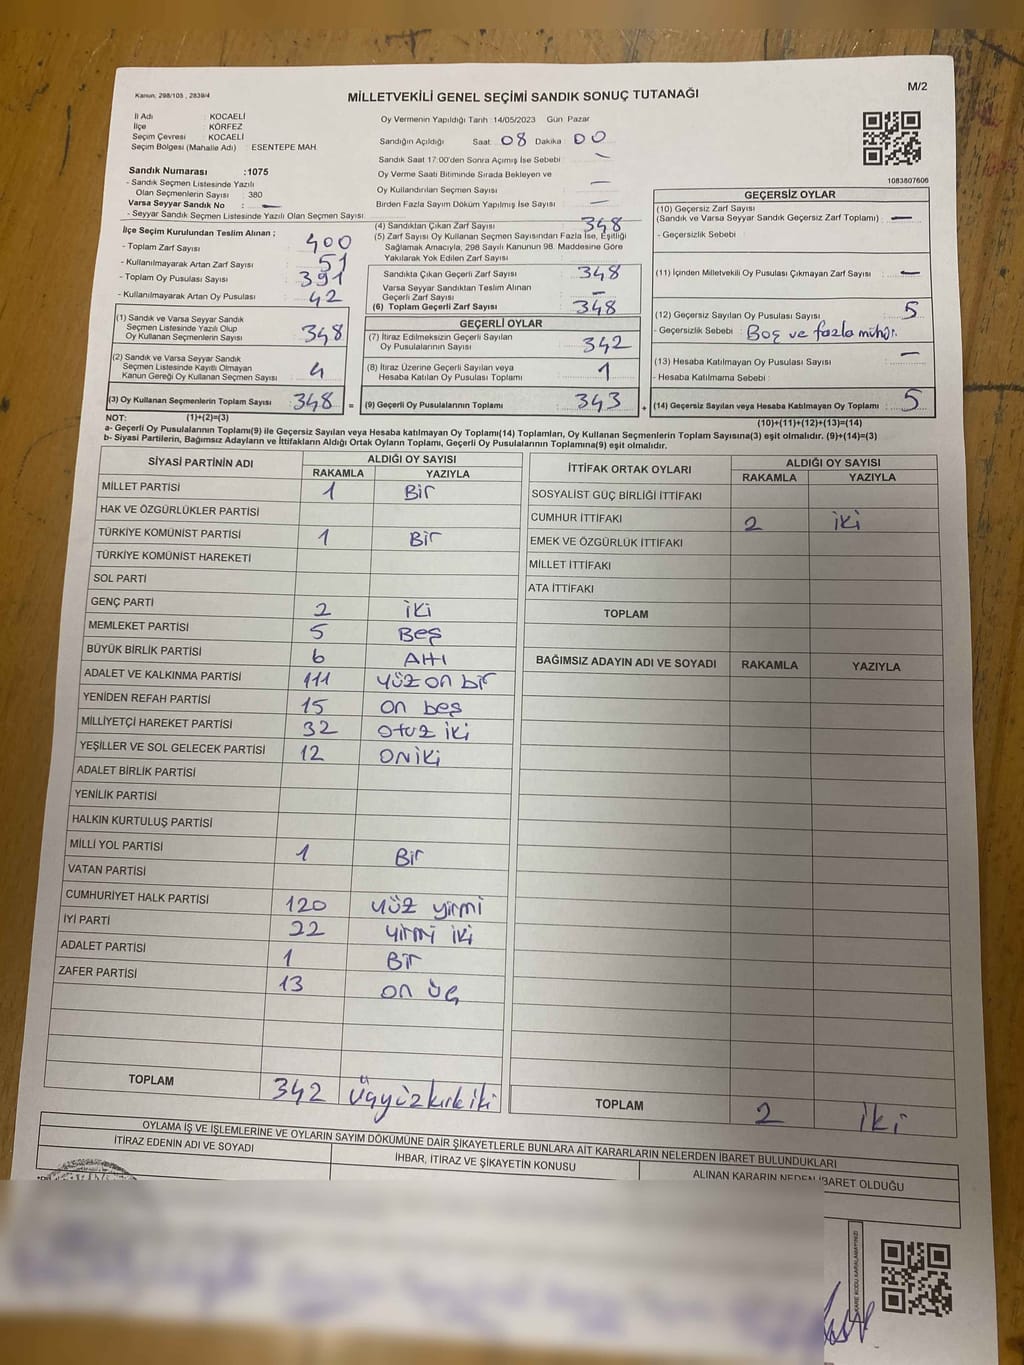 Kanun, 298/105 , 2839/4
M/2
MİLLETVEKİLİ GENEL SEÇİMİ SANDIK SONUÇ TUTANAĞI
İl Adı : KOCAELİ
İlçe : KÖRFEZ
Seçim Çevresi : KOCAELİ
Seçim Bölgesi (Mahalle Adı) : ESENTEPE MAH.
Sandık Numarası :1075
- Sandık Seçmen Listesinde Yazılı
Olan Seçmenlerin Sayısı : 380
Varsa Seyyar Sandık No : —
- Seyyar Sandık Seçmen Listesinde Yazılı Olan Seçmen Sayısı
İlçe Seçim Kurulundan Teslim Alınan ;
- Toplam Zarf Sayısı : 400
- Kullanılmayarak Artan Zarf Sayısı : 51
- Toplam Oy Pusulası Sayısı : 391
- Kullanılmayarak Artan Oy Pusulası : 42
(1) Sandık ve Varsa Seyyar Sandık
Seçmen Listesinde Yazılı Olup
Oy Kullanan Seçmenlerin Sayısı : 348
(2) Sandık ve Varsa Seyyar Sandık
Seçmen Listesinde Kayıtlı Olmayan
Kanun Gereği Oy Kullanan Seçmen Sayısı : 4
(3) Oy Kullanan Seçmenlerin Toplam Sayısı 348 =
Oy Vermenin Yapıldığı Tarih :14/05/2023 Gün :Pazar
Sandığın Açıldığı Saat: 08 Dakika : 00
Sandık Saat 17:00'den Sonra Açımış İse Sebebi : —
Oy Verme Saati Bitiminde Sırada Bekleyen ve
Oy Kullandırılan Seçmen Sayısı : —
Birden Fazla Sayım Döküm Yapılmış İse Sayısı : —
(4) Sandıktan Çıkan Zarf Sayısı : 348
(5) Zarf Sayısı Oy Kullanan Seçmen Sayısından Fazla İse, Eşitliği
Sağlamak Amacıyla, 298 Sayılı Kanunun 98. Maddesine Göre
Yakılarak Yok Edilen Zarf Sayısı :
Sandıkta Çıkan Geçerli Zarf Sayısı : 348
Varsa Seyyar Sandıktan Teslim Alınan
Geçerli Zarf Sayısı : —
(6) Toplam Geçerli Zarf Sayısı : 348
GEÇERLİ OYLAR
(7) İtiraz Edilmeksizin Geçerli Sayılan
Oy Pusulalarının Sayısı : 342
(8) İtiraz Üzerine Geçerli Sayılan veya
Hesaba Katılan Oy Pusulası Toplamı : 1
(9) Geçerli Oy Pusulalarının Toplamı : 343 +
1083807606
GEÇERSİZ OYLAR
(10) Geçersiz Zarf Sayısı
(Sandık ve Varsa Seyyar Sandık Geçersiz Zarf Toplamı) : —
- Geçersizlik Sebebi :
(11) İçinden Milletvekili Oy Pusulası Çıkmayan Zarf Sayısı : —
(12) Geçersiz Sayılan Oy Pusulası Sayısı : 5
- Geçersizlik Sebebi : Boş ve fazla mühür.
(13) Hesaba Katılmayan Oy Pusulası Sayısı : —
- Hesaba Katılmama Sebebi :
(14) Geçersiz Sayılan veya Hesaba Katılmayan Oy Toplamı : 5
NOT: (1)+(2)=(3)
(10)+(11)+(12)+(13)=(14)
a- Geçerli Oy Pusulalarının Toplamı(9) ile Geçersiz Sayılan veya Hesaba Katılmayan Oy Toplamı(14) Toplamları, Oy Kullanan Seçmenlerin Toplam Sayısına(3) eşit olmalıdır. (9)+(14)=(3)
b- Siyasi Partilerin, Bağımsız Adayların ve İttifakların Aldığı Ortak Oyların Toplamı, Geçerli Oy Pusulalarının Toplamına(9) eşit olmalıdır.
SİYASİ PARTİNİN ADI ALDIĞI OY SAYISI
RAKAMLA YAZIYLA
MİLLET PARTİSİ 1 Bir
HAK VE ÖZGÜRLÜKLER PARTİSİ
TÜRKİYE KOMÜNİST PARTİSİ 1 Bir
TÜRKİYE KOMÜNİST HAREKETİ
SOL PARTİ
GENÇ PARTİ 2 İki
MEMLEKET PARTİSİ 5 Beş
BÜYÜK BİRLİK PARTİSİ 6 Altı
ADALET VE KALKINMA PARTİSİ 111 Yüz on bir
YENİDEN REFAH PARTİSİ 15 on beş
MİLLİYETÇİ HAREKET PARTİSİ 32 otuz iki
YEŞİLLER VE SOL GELECEK PARTİSİ 12 ON İKİ
ADALET BİRLİK PARTİSİ
YENİLİK PARTİSİ
HALKIN KURTULUŞ PARTİSİ
MİLLİ YOL PARTİSİ 1 Bir
VATAN PARTİSİ
CUMHURİYET HALK PARTİSİ 120 yüz yirmi
İYİ PARTİ 22 yirmi iki
ADALET PARTİSİ 1 Bir
ZAFER PARTİSİ 13 on üç
TOPLAM 342 Üçyüzkırkiki
İTTİFAK ORTAK OYLARI ALDIĞI OY SAYISI
RAKAMLA YAZIYLA
SOSYALİST GÜÇ BİRLİĞİ İTTİFAKI
CUMHUR İTTİFAKI 2 iki
EMEK VE ÖZGÜRLÜK İTTİFAKI
MİLLET İTTİFAKI
ATA İTTİFAKI
TOPLAM
BAĞIMSIZ ADAYIN ADI VE SOYADI RAKAMLA YAZIYLA
TOPLAM 2 iki
OYLAMA İŞ VE İŞLEMLERİNE VE OYLARIN SAYIM DÖKÜMÜNE DAİR ŞİKAYETLERLE BUNLARA AİT KARARLARIN NELERDEN İBARET BULUNDUKLARI
İTİRAZ EDENİN ADI VE SOYADI
İHBAR, İTİRAZ VE ŞİKAYETİN KONUSU
ALINAN KARARIN NEDEN İBARET OLDUĞU
KARE KODU KARALAMAYINIZ!